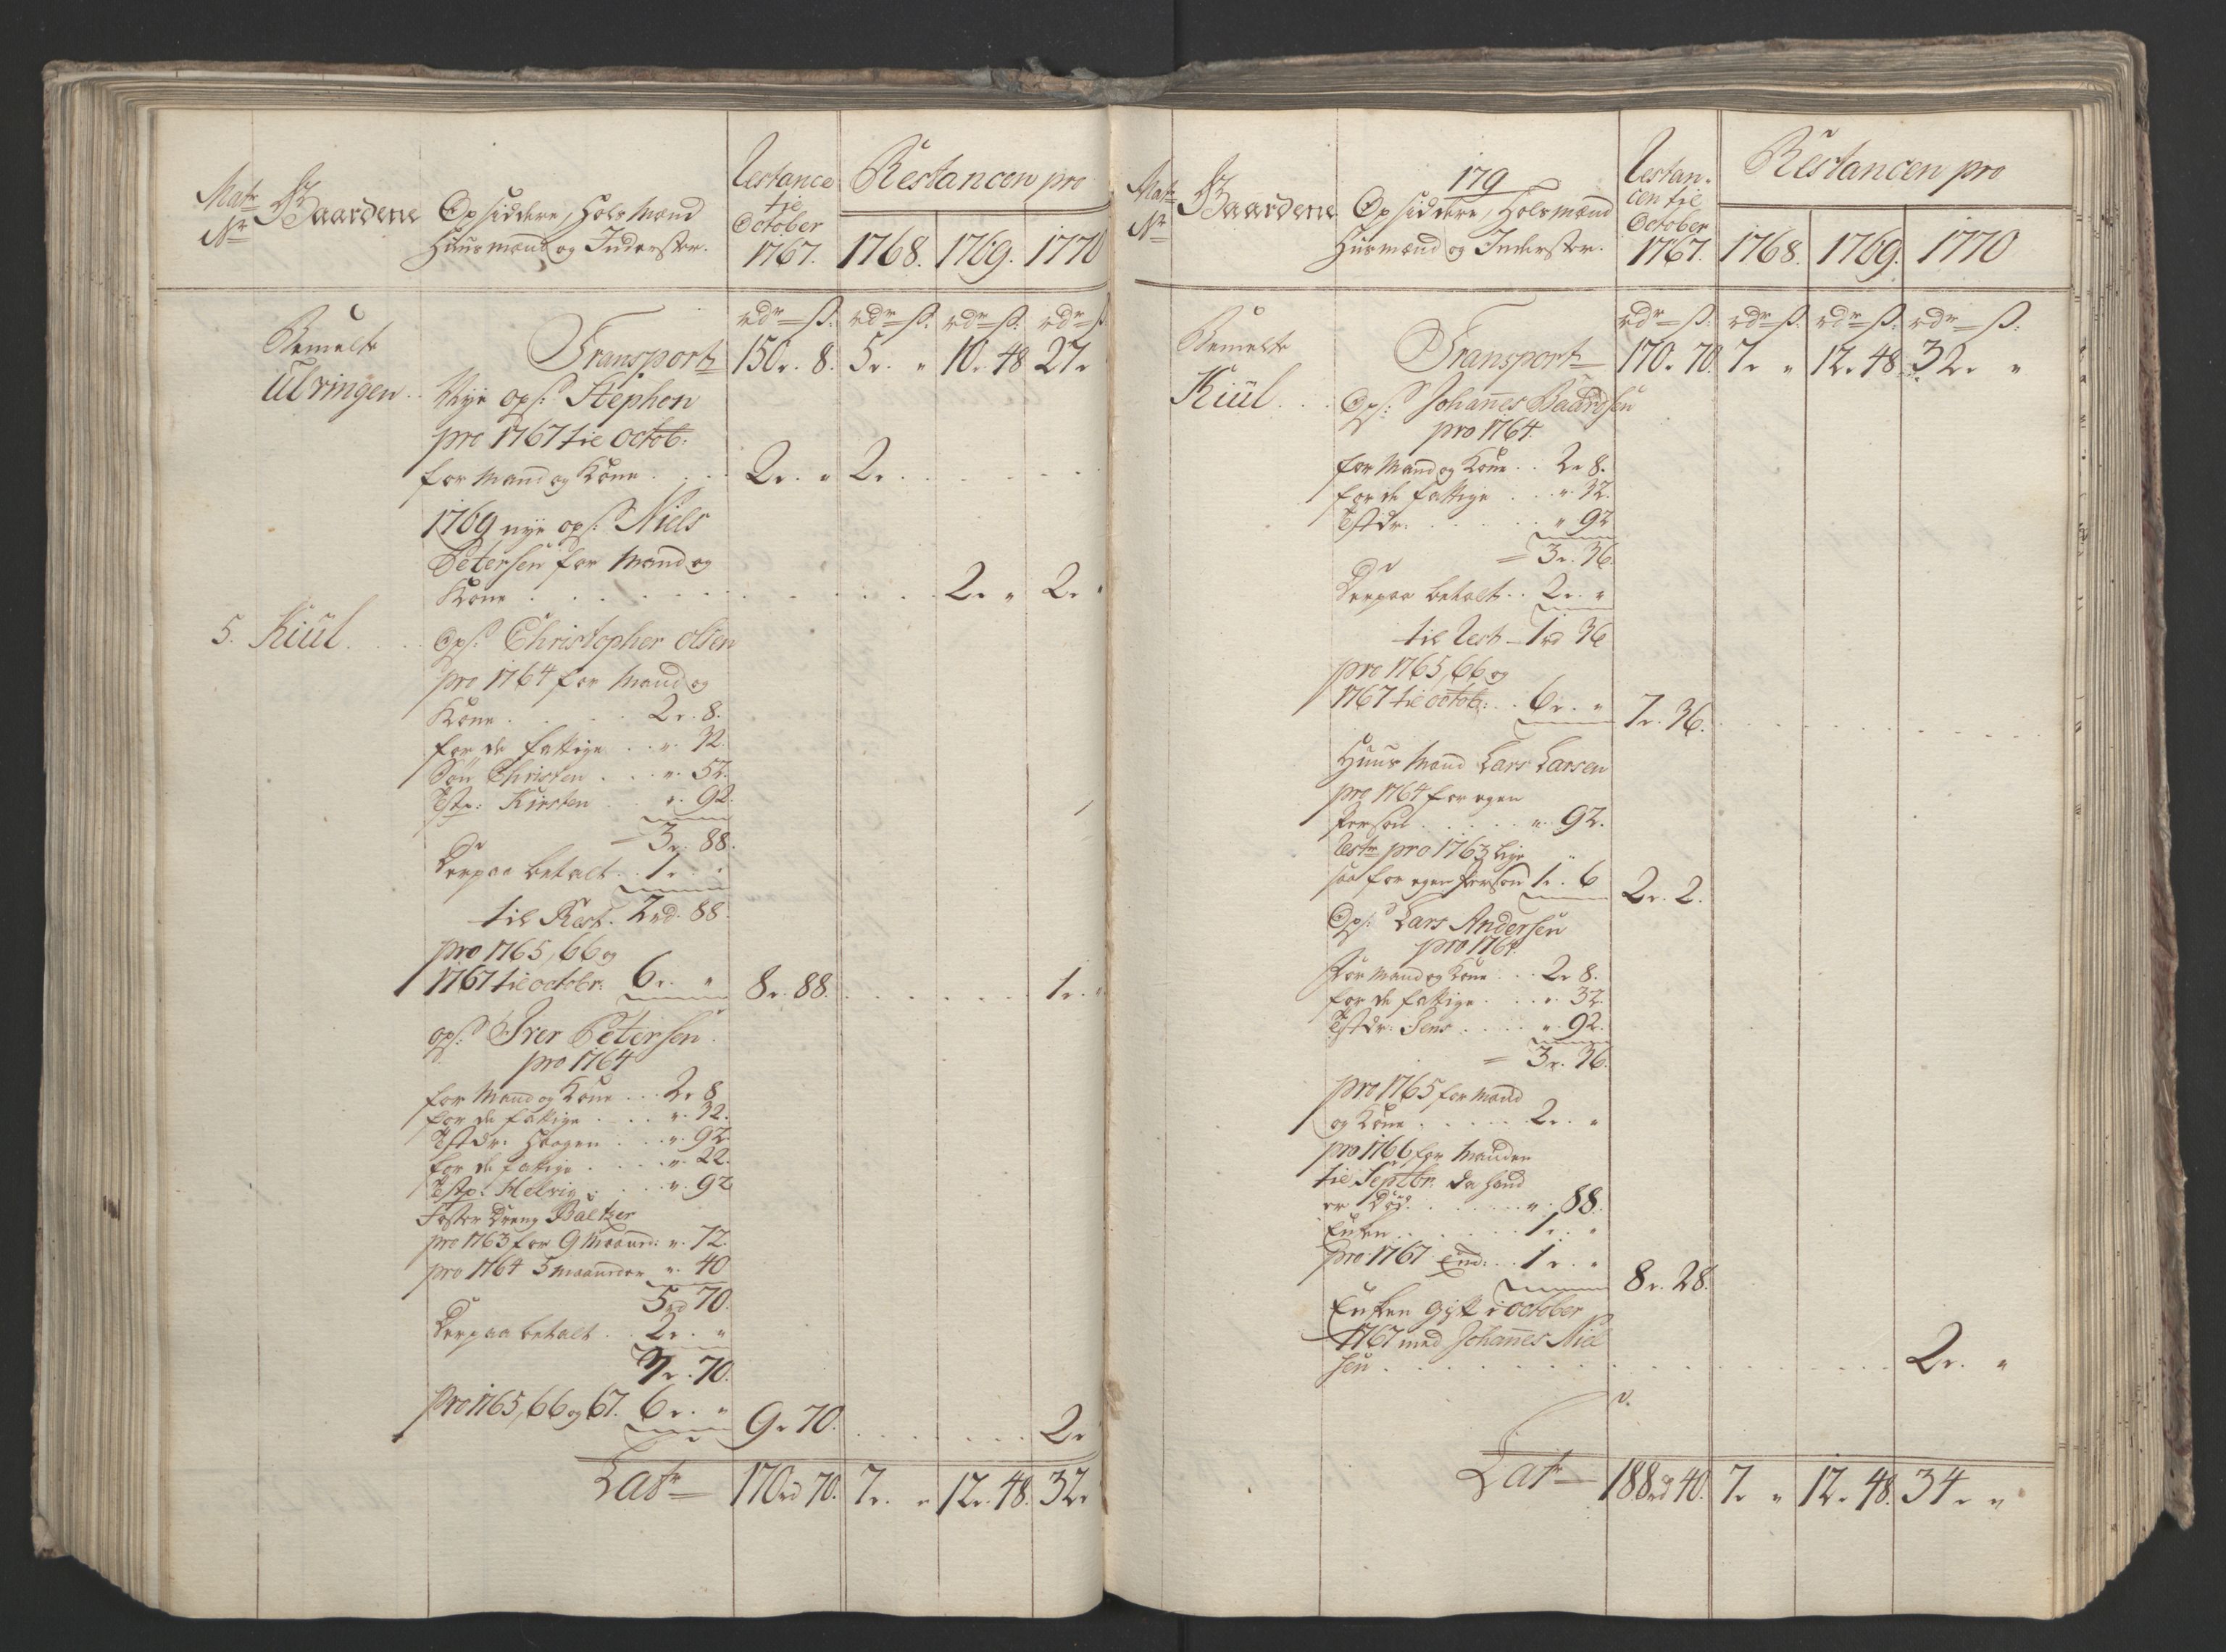 Matr Nr
Gaardene
Opsiddere, Holsmænd
Huusmænd og Inderster.
Restance
til
October
1767.
Restancen pro
1768. 1769. 1770
rdr ß. rdr ß. rdr ß. rdr ß
Bemelte Transport 150r. 8. 5r. " 10. 48 27r
Ulvringen. Nye ops: Stephen
pro 1767 til octob:
for Mand og Kone . . . 2r. " 2r. . . .
1769 nye ops: Niels
Petersen for Mand og
Kone . . . 2. " 2r.
5. Kiül. . . Ops: Christopher Olsen
pro 1764 for Mand og
Kone . . . 2r. 8.
for de fattige . . ". 32.
Søn Christen . . . ". 52.
Tstp: Kirsten . . ". 92.
= 3r. 88.
Derpaa betalt . . 1r. "
til Rest. 2rd. 88.
pro 1765, 66 og
1767 til octobr: 6r. " 8r. 88. . . . 1r. "
ops: Iver Petersen.
pro 1764
for Mand og Kone . . . 2r 8
for de fattige . . . ". 32.
Tstdr: Haagen . . ". 92.
for de fattige . . . ". 22.
Tstp: Helvig . . . ". 92
Foster Dreng Baltzer
pro 1763 for 9 Maaned: ". 72.
pro 1764 5 maaneder ". 40
5rd 70.
Derpaa betalt . . 2r. "
3r. 70.
Pro 1765, 66 og 67. 6r. " 9r 70. . . . 2r
Latr 170rd 70. 7r. " 12r. 48. 32r
179
Matr Nr
Gaardene
Opsiddere, Holsmænd
Husmænd og Inderster.
Restan-
cen til
October
1767.
Restancen pro
1768. 1769. 1770
rdr ß. rdr ß. rdr ß. rdr ß.
Bemelte Transport 170. 70. 7r " 12. 48. 32r. "
Kiül. . . Ops: Johannes Baardsen
pro 1764.
for Mand og Kone . . 2r 8.
for de fattige . . ". 32.
Tstdr: . . . " 92
= 3r. 36.
Derpaa betalt . . 2r. "
til Rest 1rd 36
pro 1765, 66 og
1767 til octob: . 6r. " 7r. 36. . . .
Huus Mand Lars Larsen
pro 1764 for egen
Person . . . ". 92.
Restr pro 1763 lige
saa for egen Person 1r. 6 2r. 2.
Ops: Lars Andersen
pro 1764.
For Mand og Kone . . 2r 8.
for de fattige . . ". 32.
Tstdr: Jens . . . ". 92.
= 3r. 36.
pro 1765 for Mand
og Kone . . . 2r. "
pro 1766 for Manden
til Septbr: da hand
er Død. . . . ". 88.
Enken . . . 1r. "
pro 1767 End: . . 1r. " 8r. 28.
Enken gift i october
1767 med Johannes Niel
sen . . . 2r. "
Latr 188rd 40. 7r " 12r. 48. 34r "